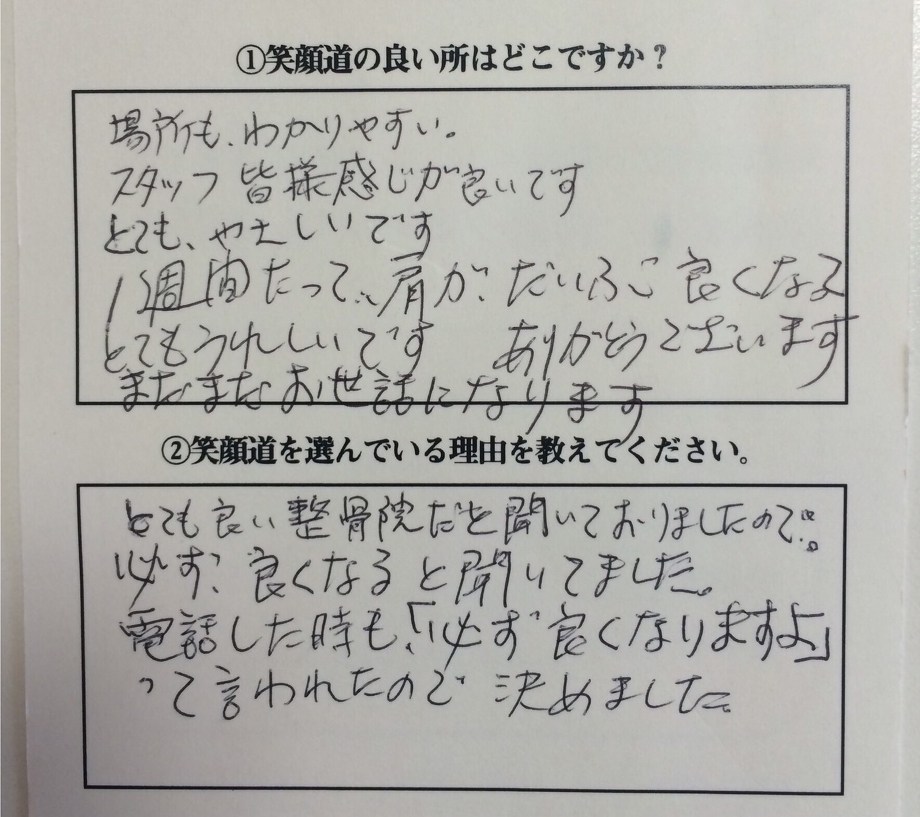 ①笑顔道の良い所はどこですか？
場所も、わかりやすい。
スタッフ皆様感じが良いです
とても、やさしいです
1週間たって、肩が、だいぶ良くなる
とてもうれしいです ありがとうございます
まだまだお世話になります
②笑顔道を選んでいる理由を教えてください。
とても良い整骨院だと聞いておりましたので。
必ず良くなると聞いてました。
電話した時も「必ず良くなりますよ」
って言われたので決めました。